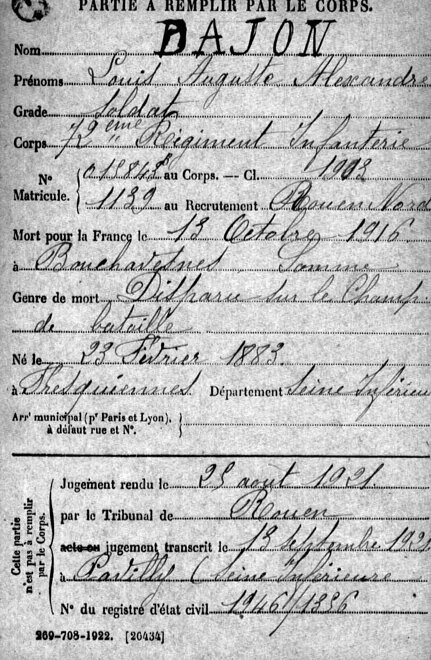 PARTIE À REMPLIR PAR LE CORPS.
Nom DAJON
Prénoms Louis Auguste Alexandre
Grade Soldat
Corps 79eme Régiment Infanterie
N° Matricule. au Corps. — Cl. 1903
1139 au Recrutement Rouen Nord
Mort pour la France le 13 Octobre 1916
à Bouchavesnes Somme
Genre de mort Disparu sur le Champ
de bataille
Né le 23 Février 1883.
à Fresquiennes Département Seine Inférieu
Arrt municipal (pr Paris et Lyon),
à défaut rue et N°.
Cette partie n'est pas à remplir par le Corps.
Jugement rendu le 25 août 1921
par le Tribunal de Rouen
acte ou jugement transcrit le 13 septembre 1921
à Pavilly (Seine Inférieure
N° du registre d'état civil 1946/1336
269-708-1922. [26434]